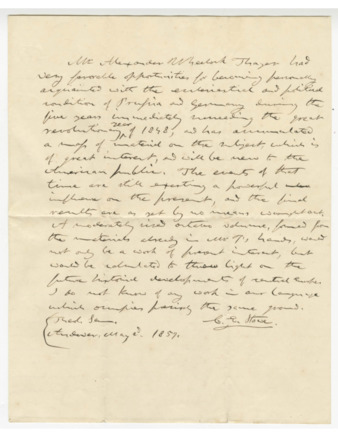 Mr Alexander Wheelock Thayer had
very favorable opportunities for becoming personally
acquainted with the ecclesiastical and political
condition of Prussia and Germany during the
five years immediately succeeding the great
revolutionary year of 1848, and has accumulated
a mass of material on the subject, which is
of great interest, and will be new to the
American public. The events of that
time are still exerting a powerful
influence on the present, and the final
results are as yet by no means
A moderately sized octavo volume, formed from
the materials already in Mr T's, hands, would
not only be a work of present interest, but
would be calculated to throw light on the
future historical developments of central Europe.
I do not know of any work in our language
which occupies precisely the same ground.
Theol. Sem. C. E. Stowe.
Andover, May 2. 1857.